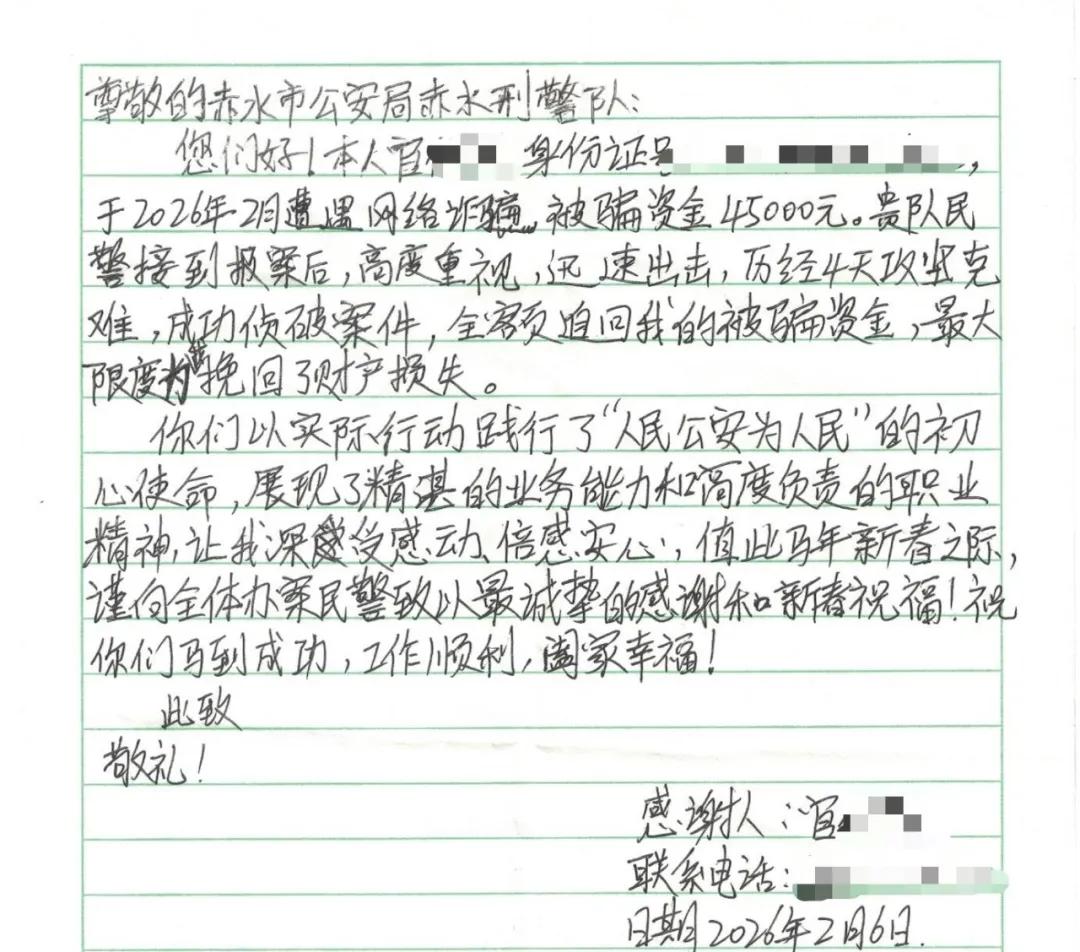 尊敬的赤水市公安局赤水刑警队：
您们好！本人官 身份证号 ，
于2026年2月遭遇网络诈骗，被骗资金45000元。贵队民
警接到报案后，高度重视，迅速出击，历经4天攻坚克
难，成功侦破案件，全额追回我的被骗资金，最大
限度挽回了财产损失。
你们以实际行动践行了“人民公安为人民”的初
心使命，展现了精湛的业务能力和高度负责的职业
精神，让我深受感动、倍感安心，值此马年新春之际，
谨向全体办案民警致以最诚挚的感谢和新春祝福！祝
你们马到成功，工作顺利，阖家幸福！
此致
敬礼！
感谢人：官
联系电话：
日期2026年2月6日.